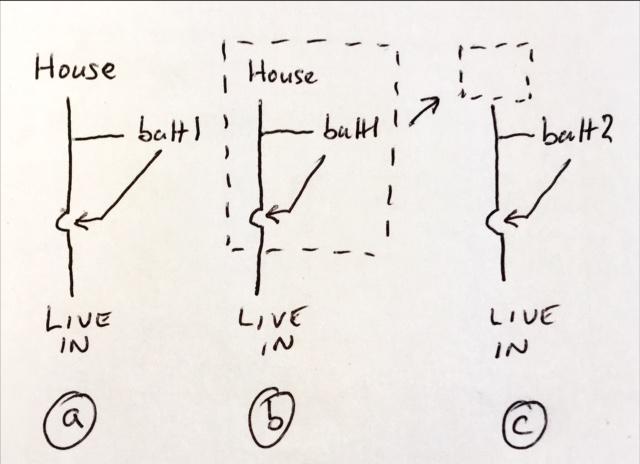 House
batt1
LIVE
IN
a
House
batt1
LIVE
IN
b
batt2
LIVE
IN
c